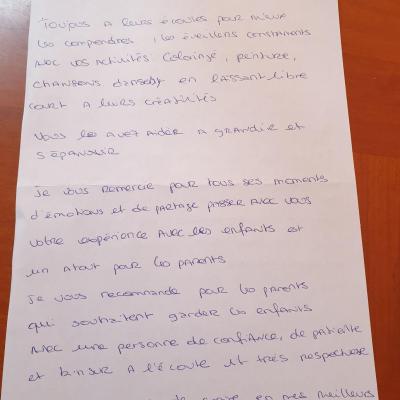 Toujours A leurs écoutes pour mieux
les comprendres, les éveillens constaments
Avec vos Activités: Coloriage, peinture,
chansons en laissant libre
court A leurs créativités
Vous les avez aider A grandir et
s'épanouir
Je vous remercie pour tous ses moments
d'émotions et de partage passer avec vous
Votre expérience avec les enfants est
un atout pour les parents
Je vous recommande pour les parents
qui souhaitent garder les enfants
Avec une personne de confiance, de patiente
et biensur A l'écoute et très respectueuse
en mes meilleurs